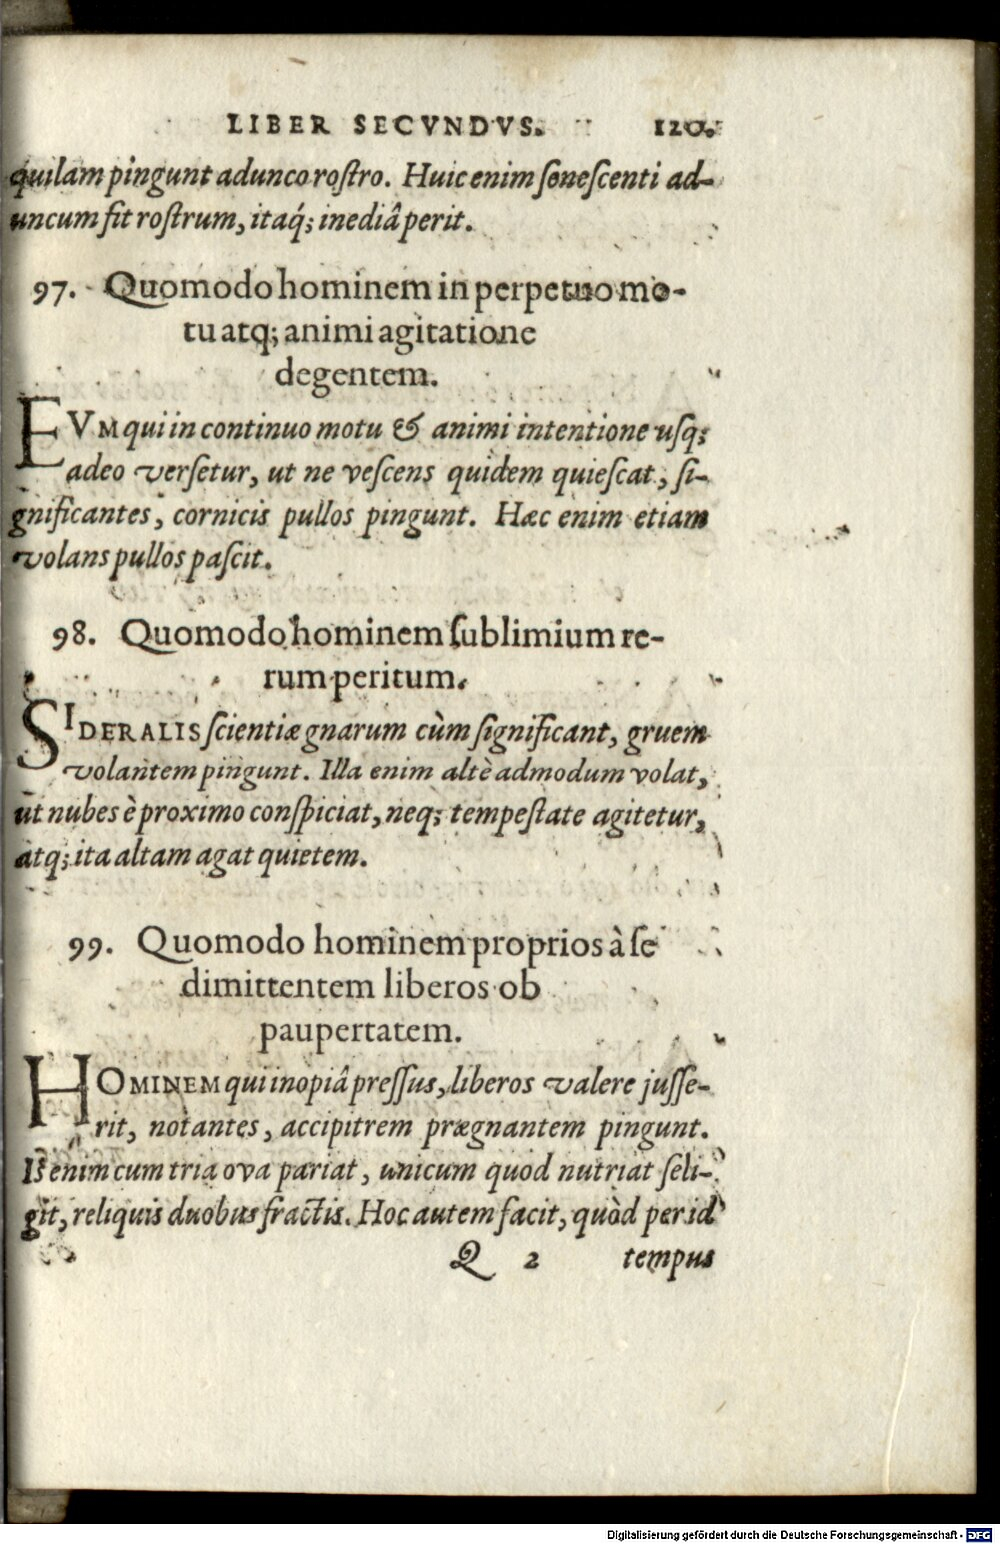 LIBER SECVNDVS. 120.
quilam pingunt adunco roſtro. Huic enim ſeneſcenti ad-
uncum fit roſtrum, itaq́; inediâ perit.
97. Quomodo hominem in perpetuo mo-
tu atq; animi agitatione
degentem.
EVM qui in continuo motu & animi intentione uſq;
adeo verſetur, ut ne veſcens quidem quieſcat, ſi-
gnificantes, cornicis pullos pingunt. Hæc enim etiam
volans pullos paſcit.
98. Quomodo hominem ſublimium re-
rum peritum.
SIDERALIS ſcientiæ gnarum cùm ſignificant, gruem
volantem pingunt. Illa enim altè admodum volat,
ut nubes è proximo conſpiciat, neq; tempeſtate agitetur,
atq; ita altam agat quietem.
99. Quomodo hominem proprios à ſe
dimittentem liberos ob
paupertatem.
HOMINEM qui inopiâ preſſus, liberos valere juſſe-
rit, notantes, accipitrem prægnantem pingunt.
Is enim cum tria ova pariat, unicum quod nutriat ſeli-
git, reliquis duobus fractis. Hoc autem facit, quòd per id
Q 2 tempus
Digitalisierung gefördert durch die Deutsche Forschungsgemeinschaft - DFG